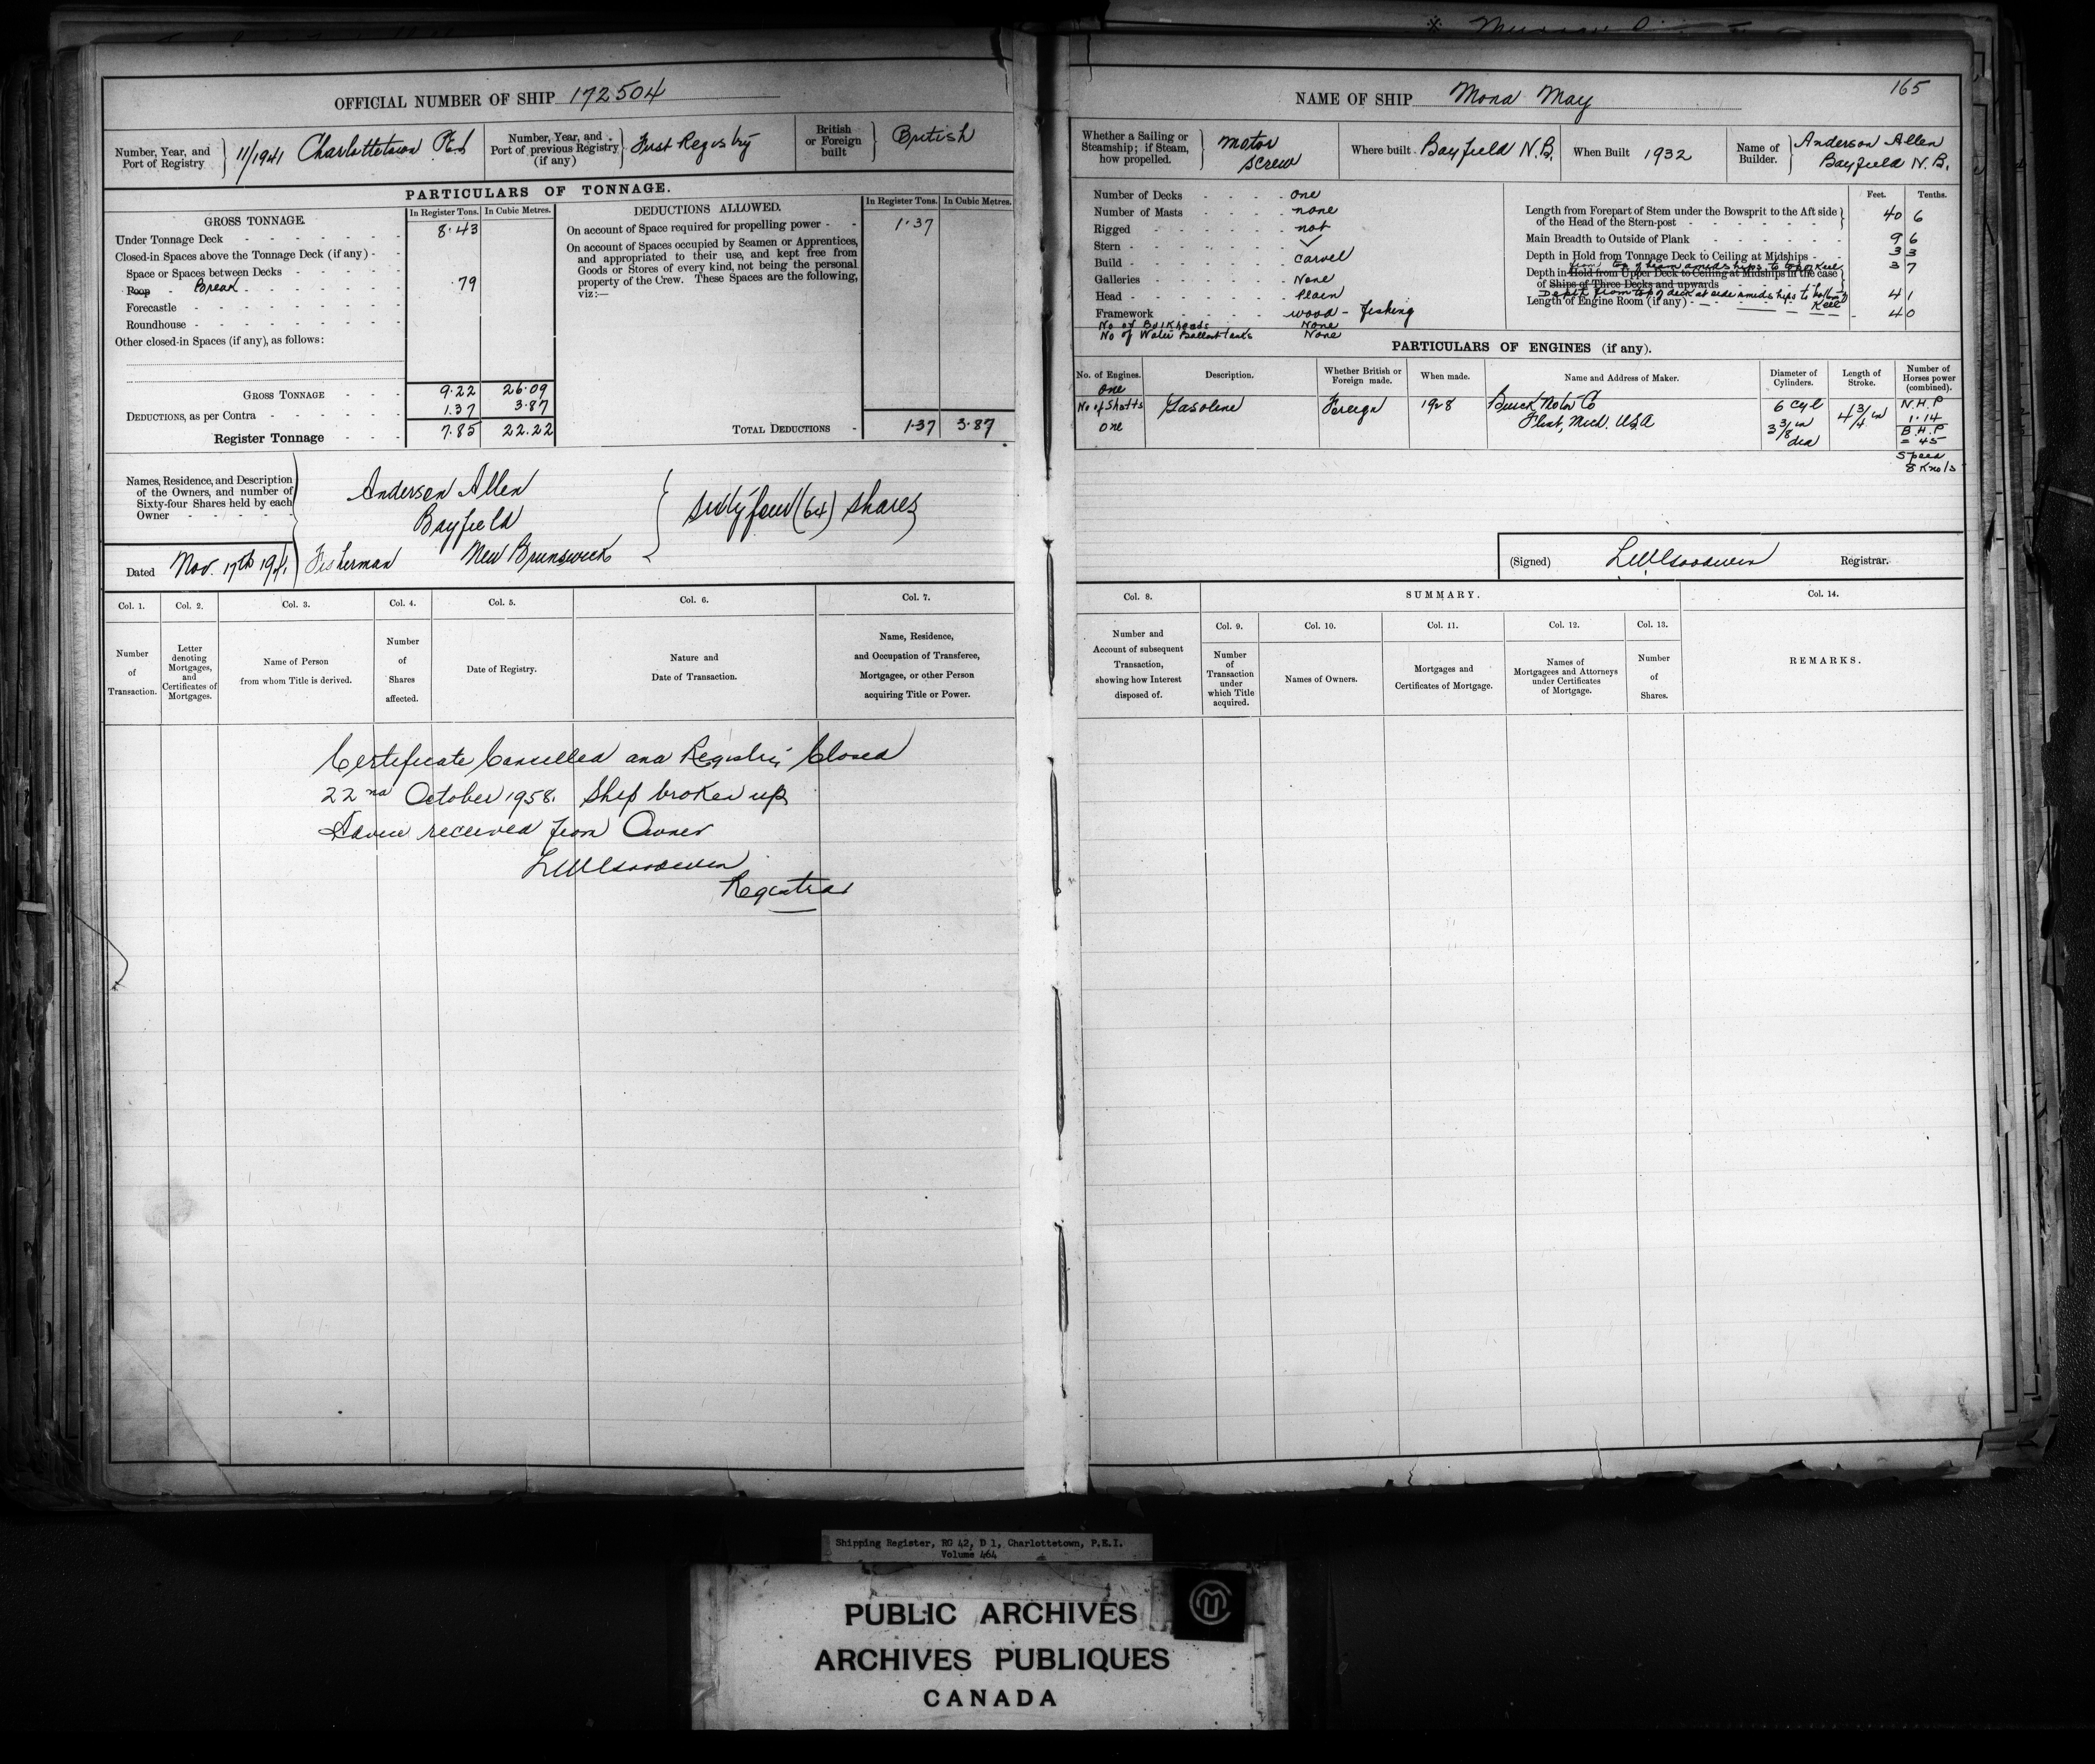 OFFICIAL NUMBER OF SHIP 172504
Number, Year, and Port of Registry } 11/1941 Charlottetown PEI
Number, Year, and Port of previous Registry (if any) } First Registry
British or Foreign built } British
PARTICULARS OF TONNAGE.
GROSS TONNAGE.
In Register Tons. In Cubic Metres.
Under Tonnage Deck 8.43
Closed-in Spaces above the Tonnage Deck (if any)
Space or Spaces between Decks
Poop Break .79
Forecastle
Roundhouse
Other closed-in Spaces (if any), as follows:
GROSS TONNAGE 9.22 26.09
DEDUCTIONS, as per Contra 1.37 3.87
Register Tonnage 7.85 22.22
DEDUCTIONS ALLOWED.
In Register Tons. In Cubic Metres.
On account of Space required for propelling power 1.37
On account of Spaces occupied by Seamen or Apprentices,
and appropriated to their use, and kept free from
Goods or Stores of every kind, not being the personal
property of the Crew. These Spaces are the following,
viz:—
TOTAL DEDUCTIONS 1.37 3.87
Names, Residence, and Description
of the Owners, and number of
Sixty-four Shares held by each
Owner
Anderson Allen
Bayfield
Fisherman New Brunswick
Sixty four (64) shares
Dated Nov. 17th 1941
Col. 1. Col. 2. Col. 3. Col. 4. Col. 5. Col. 6. Col. 7.
Number of Transaction.
Letter denoting Mortgages, and Certificates of Mortgages.
Name of Person from whom Title is derived.
Number of Shares affected.
Date of Registry.
Nature and Date of Transaction.
Name, Residence, and Occupation of Transferee, Mortgagee, or other Person acquiring Title or Power.
Certificate Cancelled and Registry Closed
22nd October 1958. Ship broken up
Advice received from Owner
Registrar
165
NAME OF SHIP Mona May
Whether a Sailing or Steamship; if Steam, how propelled. } Motor screw
Where built Bayfield N.B.
When Built 1932
Name of Builder. } Anderson Allen Bayfield N.B.
Number of Decks one
Number of Masts none
Rigged not
Stern
Build carvel
Galleries None
Head plain
Framework wood - fishing
No of Bulkheads None
No of Water Ballast tanks None
Feet. Tenths.
Length from Forepart of Stem under the Bowsprit to the Aft side
of the Head of the Stern-post 40 6
Main Breadth to Outside of Plank 9 6
Depth in Hold from Tonnage Deck to Ceiling at Midships 3 3
from top of beam amidships to top of Keel
Depth in Hold from Upper Deck to Ceiling at Midships in the case
of Ships of Three Decks and upwards 3 7
Depth from top of deck at side amidships to bottom of Keel 4 1
Length of Engine Room (if any) 4 0
PARTICULARS OF ENGINES (if any).
No. of Engines. Description. Whether British or Foreign made. When made. Name and Address of Maker. Diameter of Cylinders. Length of Stroke. Number of Horses power (combined).
one
No of Shafts
one
Gasoline
Foreign
1928
Buick Motor Co
Flint, Mich. USA
6 Cyl
3 3/8 in
dia
4 3/4 in
N.H.P
1.14
B.H.P
= 45
Speed
8 Knots
(Signed) Registrar.
Col. 8. SUMMARY. Col. 14.
Col. 9. Col. 10. Col. 11. Col. 12. Col. 13.
Number and Account of subsequent Transaction, showing how Interest disposed of.
Number of Transaction under which Title acquired.
Names of Owners.
Mortgages and Certificates of Mortgage.
Names of Mortgagees and Attorneys under Certificates of Mortgage.
Number of Shares.
REMARKS.
Shipping Register, RG 42, D 1, Charlottetown, P.E.I.
Volume 464
PUBLIC ARCHIVES
ARCHIVES PUBLIQUES
CANADA